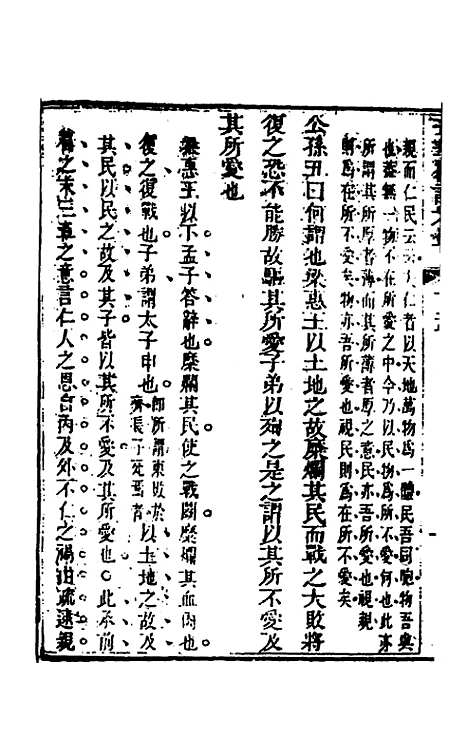 親而仁民云云夫仁者以天地萬物爲一體民吾同胞物吾與
也蓋無一物不在所愛之中今乃以民物所不愛何也此亦
所謂其所厚者薄而其所薄者厚之意民亦吾所愛也視親
則爲在所不愛矣物亦吾所愛也視民則爲在所不愛矣
公孫丑曰何謂也梁惠王以土地之故糜爛其民而戰之大敗將
復之恐不能勝故驅其所愛子弟以殉之是之謂以其所不愛及
其所愛也
梁惠王以下孟子答辭也糜爛其民使之戰鬪糜爛其血肉也
復之復戰也子弟謂太子申也即所謂東敗於齊長子死焉者以土地之故及
其民以民之故及其子皆以其所不愛及其所愛也此承前
篇之末三章之意言仁人之恩自內及外不仁之禍由疏逮親